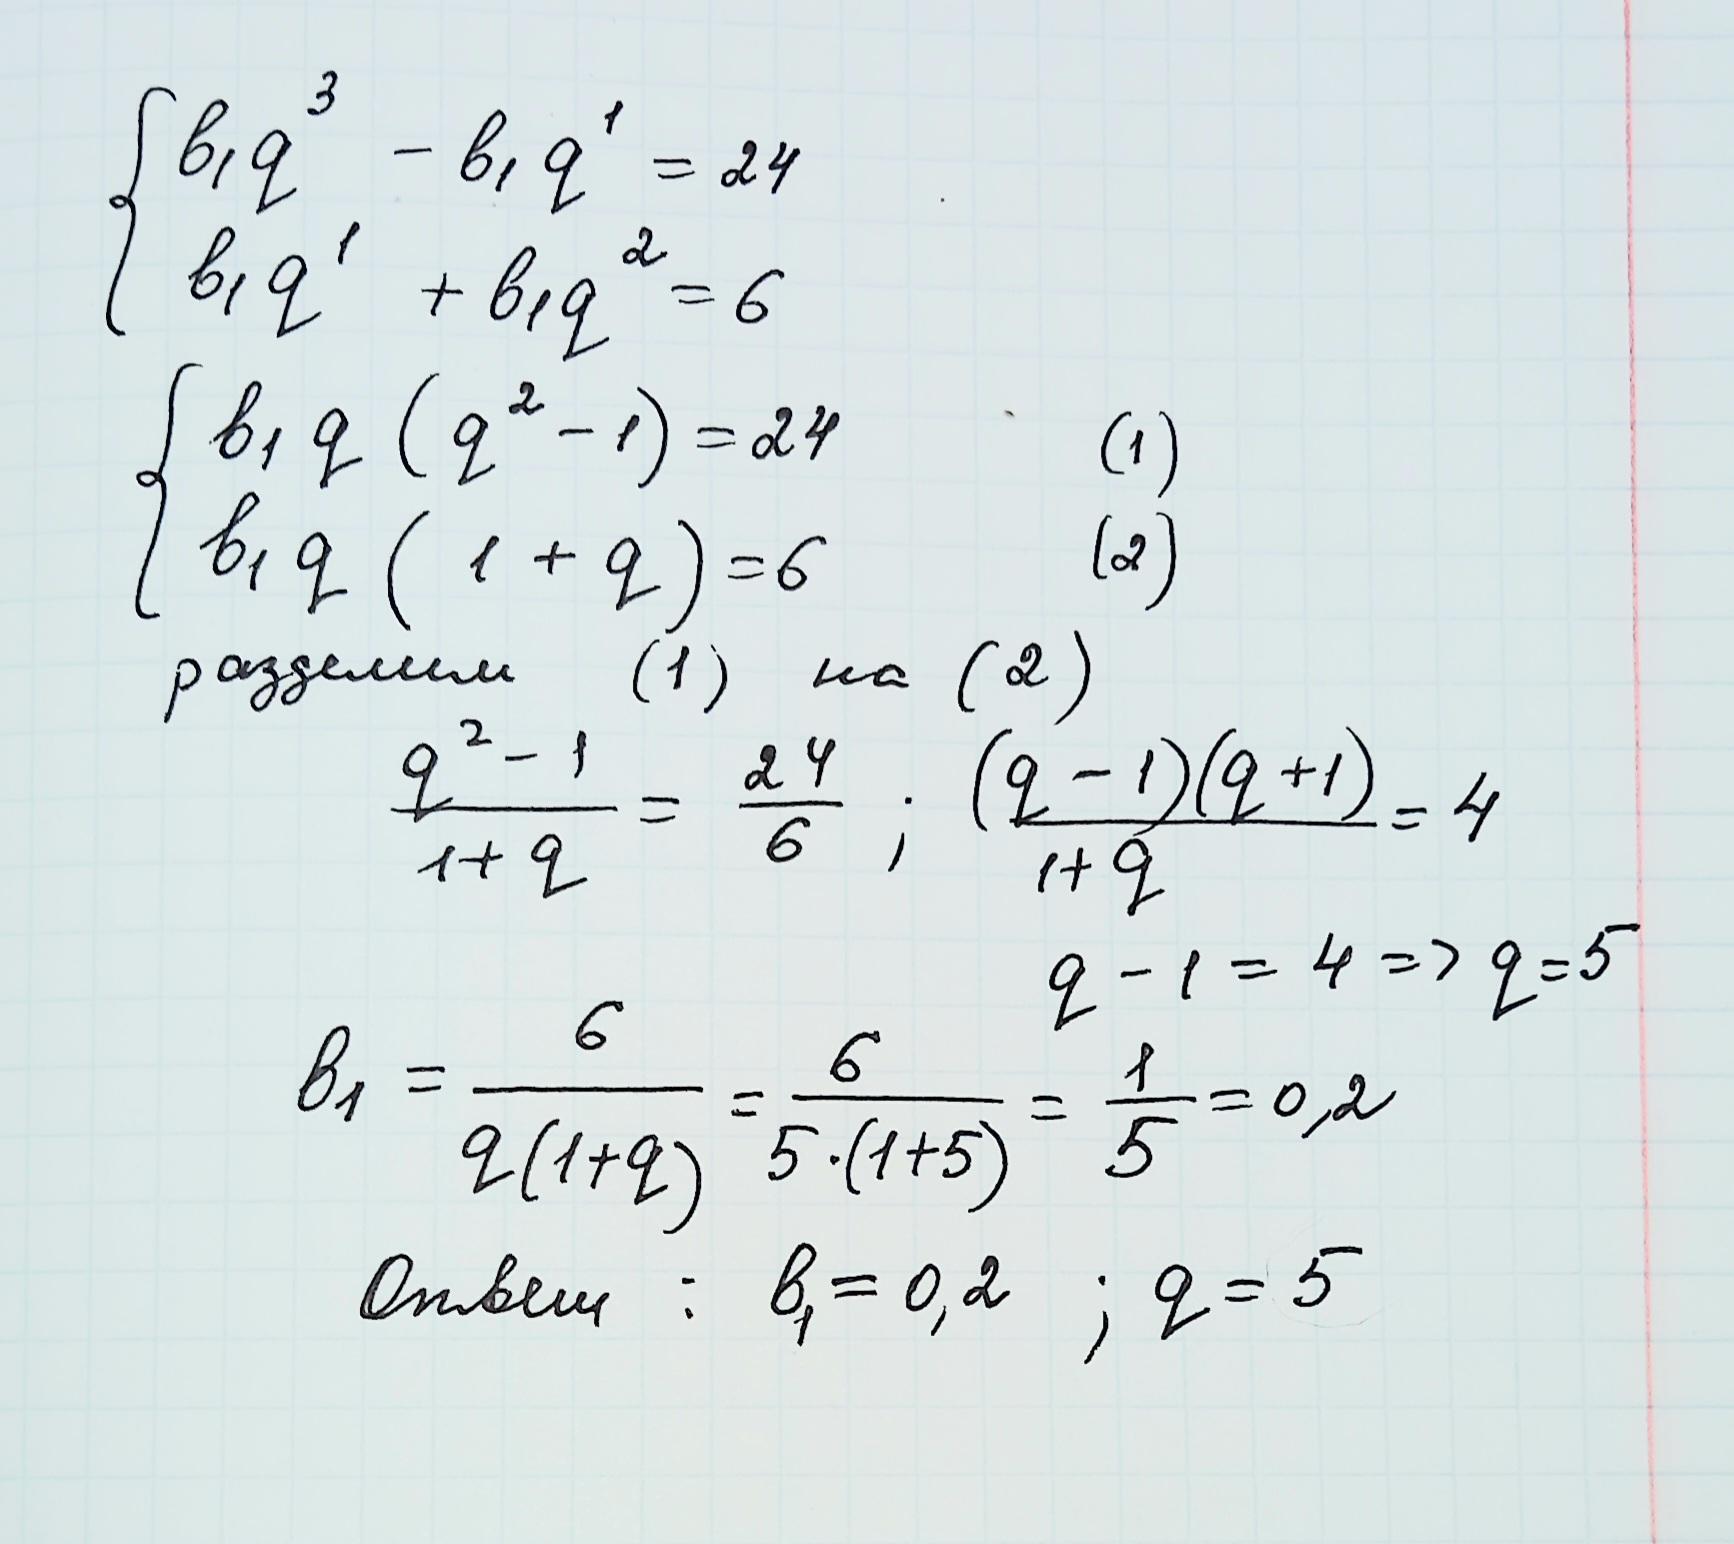 { b₁q³ - b₁q¹ = 24
b₁q¹ + b₁q² = 6
{ b₁q (q² - 1) = 24 (1)
b₁q (1 + q) = 6 (2)
разделим (1) на (2)
(q² - 1)/(1 + q) = 24/6 ; ((q - 1)(q + 1))/(1 + q) = 4
q - 1 = 4 => q = 5
b₁ = 6/(q(1+q)) = 6/(5·(1+5)) = 1/5 = 0,2
Ответ : b₁ = 0,2 ; q = 5